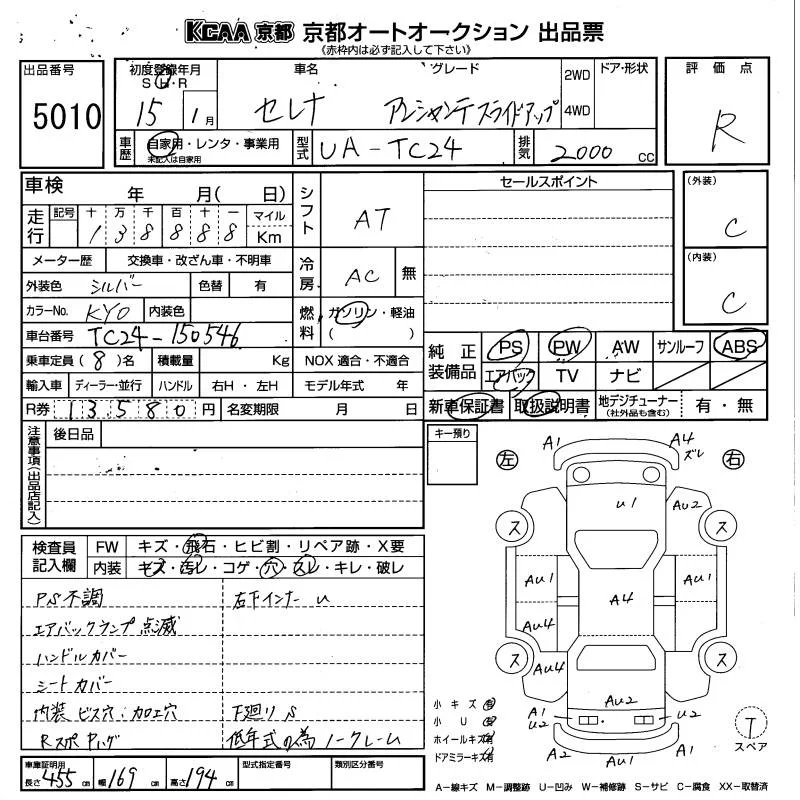 KCAA 京都 京都オートオークション 出品票
《赤枠内は必ず記入して下さい》
出品番号
5010
初度登録年月
S・H・R
15 1月
車名
セレナ
グレード
アルシャンテスライドアップ
2WD
4WD
ドア・形状
評価点
R
車歴
自家用・レンタ・事業用
未記入は自家用
型式
UA-TC24
排気
2000 CC
車検 年 月( 日)
走行
記号 十 万 千 百 十 一 マイル
1 3 8 8 8 8 Km
メーター歴 交換車・改ざん車・不明車
外装色 シルバー 色替 有
カラーNo. KY0 内装色
車台番号 TC24-150546
乗車定員(8)名 積載量 Kg
輸入車 ディーラー・並行 ハンドル 右H・左H
R券 13580円 名変期限 月 日
シフト AT
冷房 AC 無
燃料 ガソリン・軽油
( )
NOX 適合・不適合
モデル年式 年
セールスポイント
(外装)
C
(内装)
C
純正装備品
PS PW AW サンルーフ ABS
エアバック TV ナビ
新車保証書 取扱説明書 地デジチューナー
(社外品も含む)
有・無
注意事項(出品店記入)
後日品
キー預り
検査員記入欄
FW キズ・飛石・ヒビ割・リペア跡・X要
内装 キズ・汚レ・コゲ・穴・スレ・キレ・破レ
PS不調 右下インナー U
エアバックランプ点滅
ハンドルカバー
シートカバー
内装ビス穴・加工穴 下廻りS
Rスポ Pハゲ 低年式の為ノークレーム
車庫証明用
長さ 455cm 幅 169cm 高さ 194cm
型式指定番号
類別区分番号
左
右
A1
A4
ズレ
U1
AU2
ス
ス
AU1
AU1
A4
AU4
ス
AU4
ス
AU2
A1
U2
U2
A1
A2
A1
小キズ有
小U有
ホイールキズ有
ドアミラーキズ有
T
スペア
A―線キズ M―調整跡 U―凹み W―補修跡 S―サビ C―腐食 XX―取替済